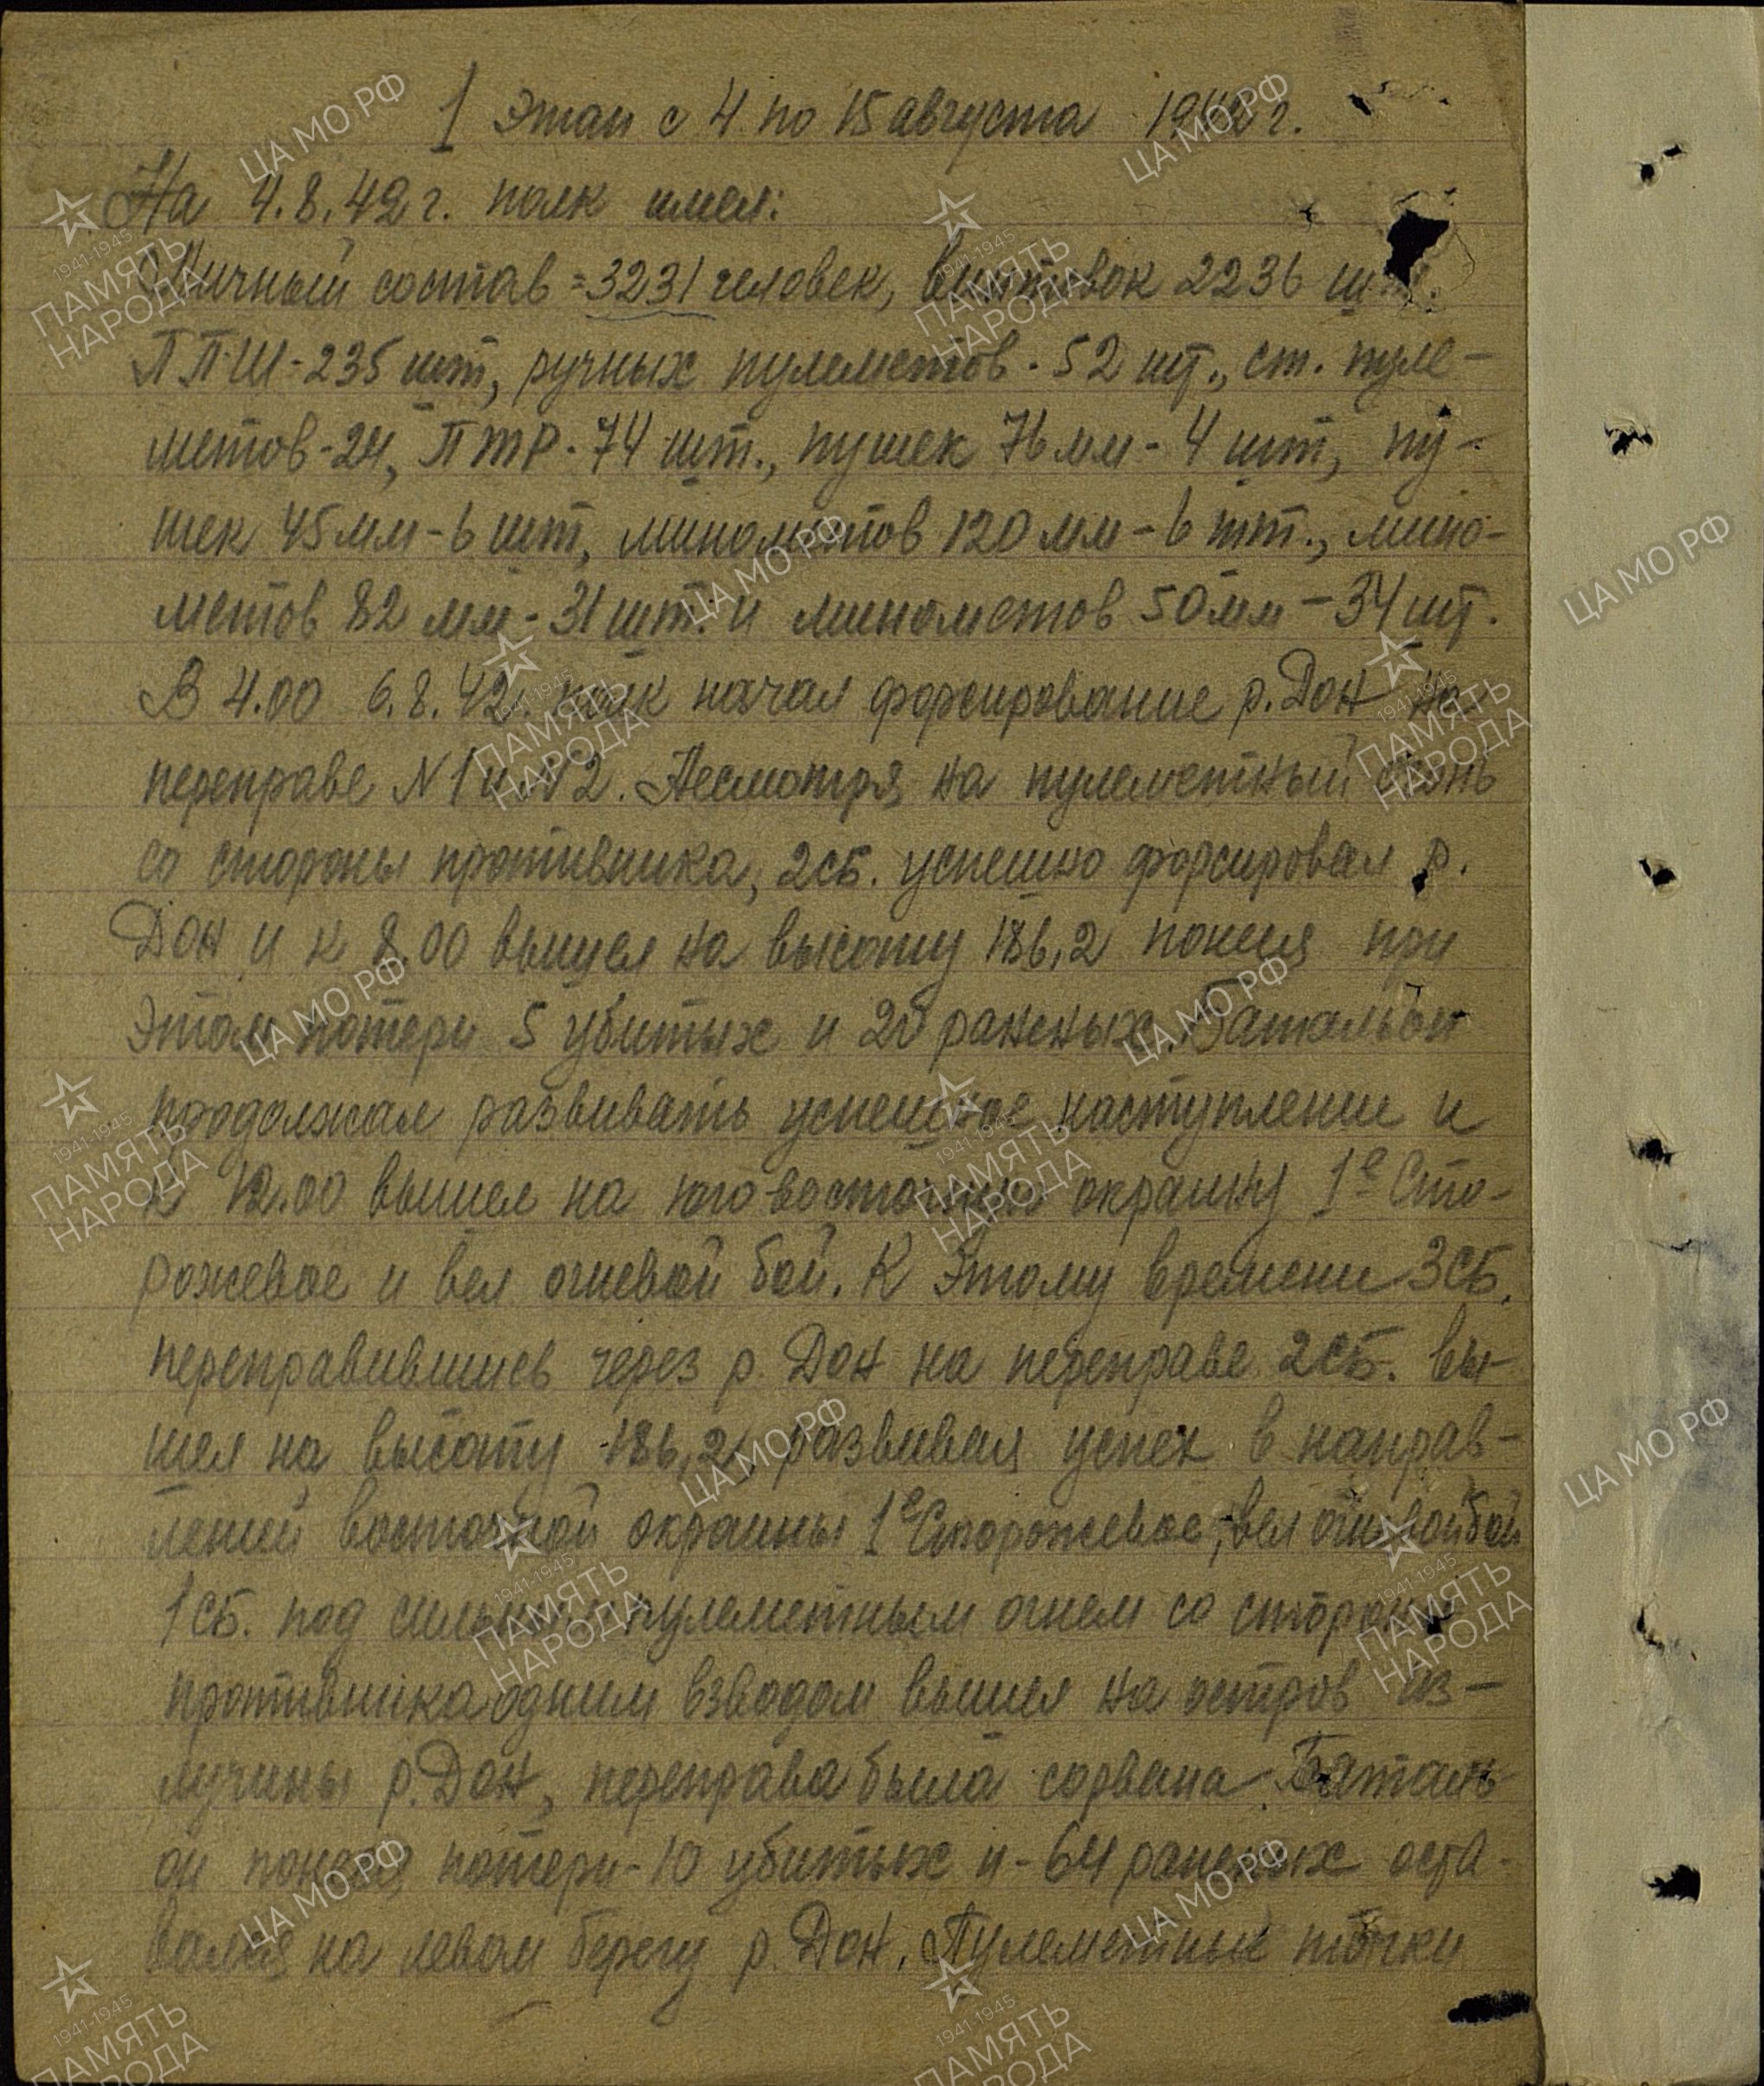 1 этап с 4 по 15 августа 1942 г.
На 4.8.42 г. полк имел:
Личный состав = 3231 человек, винтовок 2236 шт.
ППШ - 235 шт, ручных пулеметов - 52 шт., ст. пуле-
метов - 24, ПТР - 74 шт., пушек 76 мм - 4 шт, пу-
шек 45 мм - 6 шт, минометов 120 мм - 6 шт., мино-
метов 82 мм - 31 шт. и минометов 50 мм - 34 шт.
В 4.00 6.8.42. полк начал форсирование р. Дон на
переправе N 1 и N 2. Несмотря на пулеметный огонь
со стороны противника, 2 сб. успешно форсировал р.
Дон и к 8.00 вышел на высоту 186,2 понеся при
этом потери 5 убитых и 20 раненых. Батальон
продолжал развивать успешное наступление и
к 12.00 вышел на юго-восточную окраину 1е Сто-
рожевое и вел огневой бой. К этому времени 3 сб.
переправившись через р. Дон на переправе 2 сб. вы-
шел на высоту 186,2, развивая успех в направ-
лений восточной окраины 1е Сторожевое, вел огневой бой
1 сб. под сильным пулеметным огнем со стороны
противника одним взводом вышел на остров из-
лучины р. Дон, переправа была сорвана. Баталь-
он понеся потери - 10 убитых и - 64 раненых оста-
вался на левом берегу р. Дон. Пулеметные точки
ЦА МО РФ
1941-1945
ПАМЯТЬ
НАРОДА